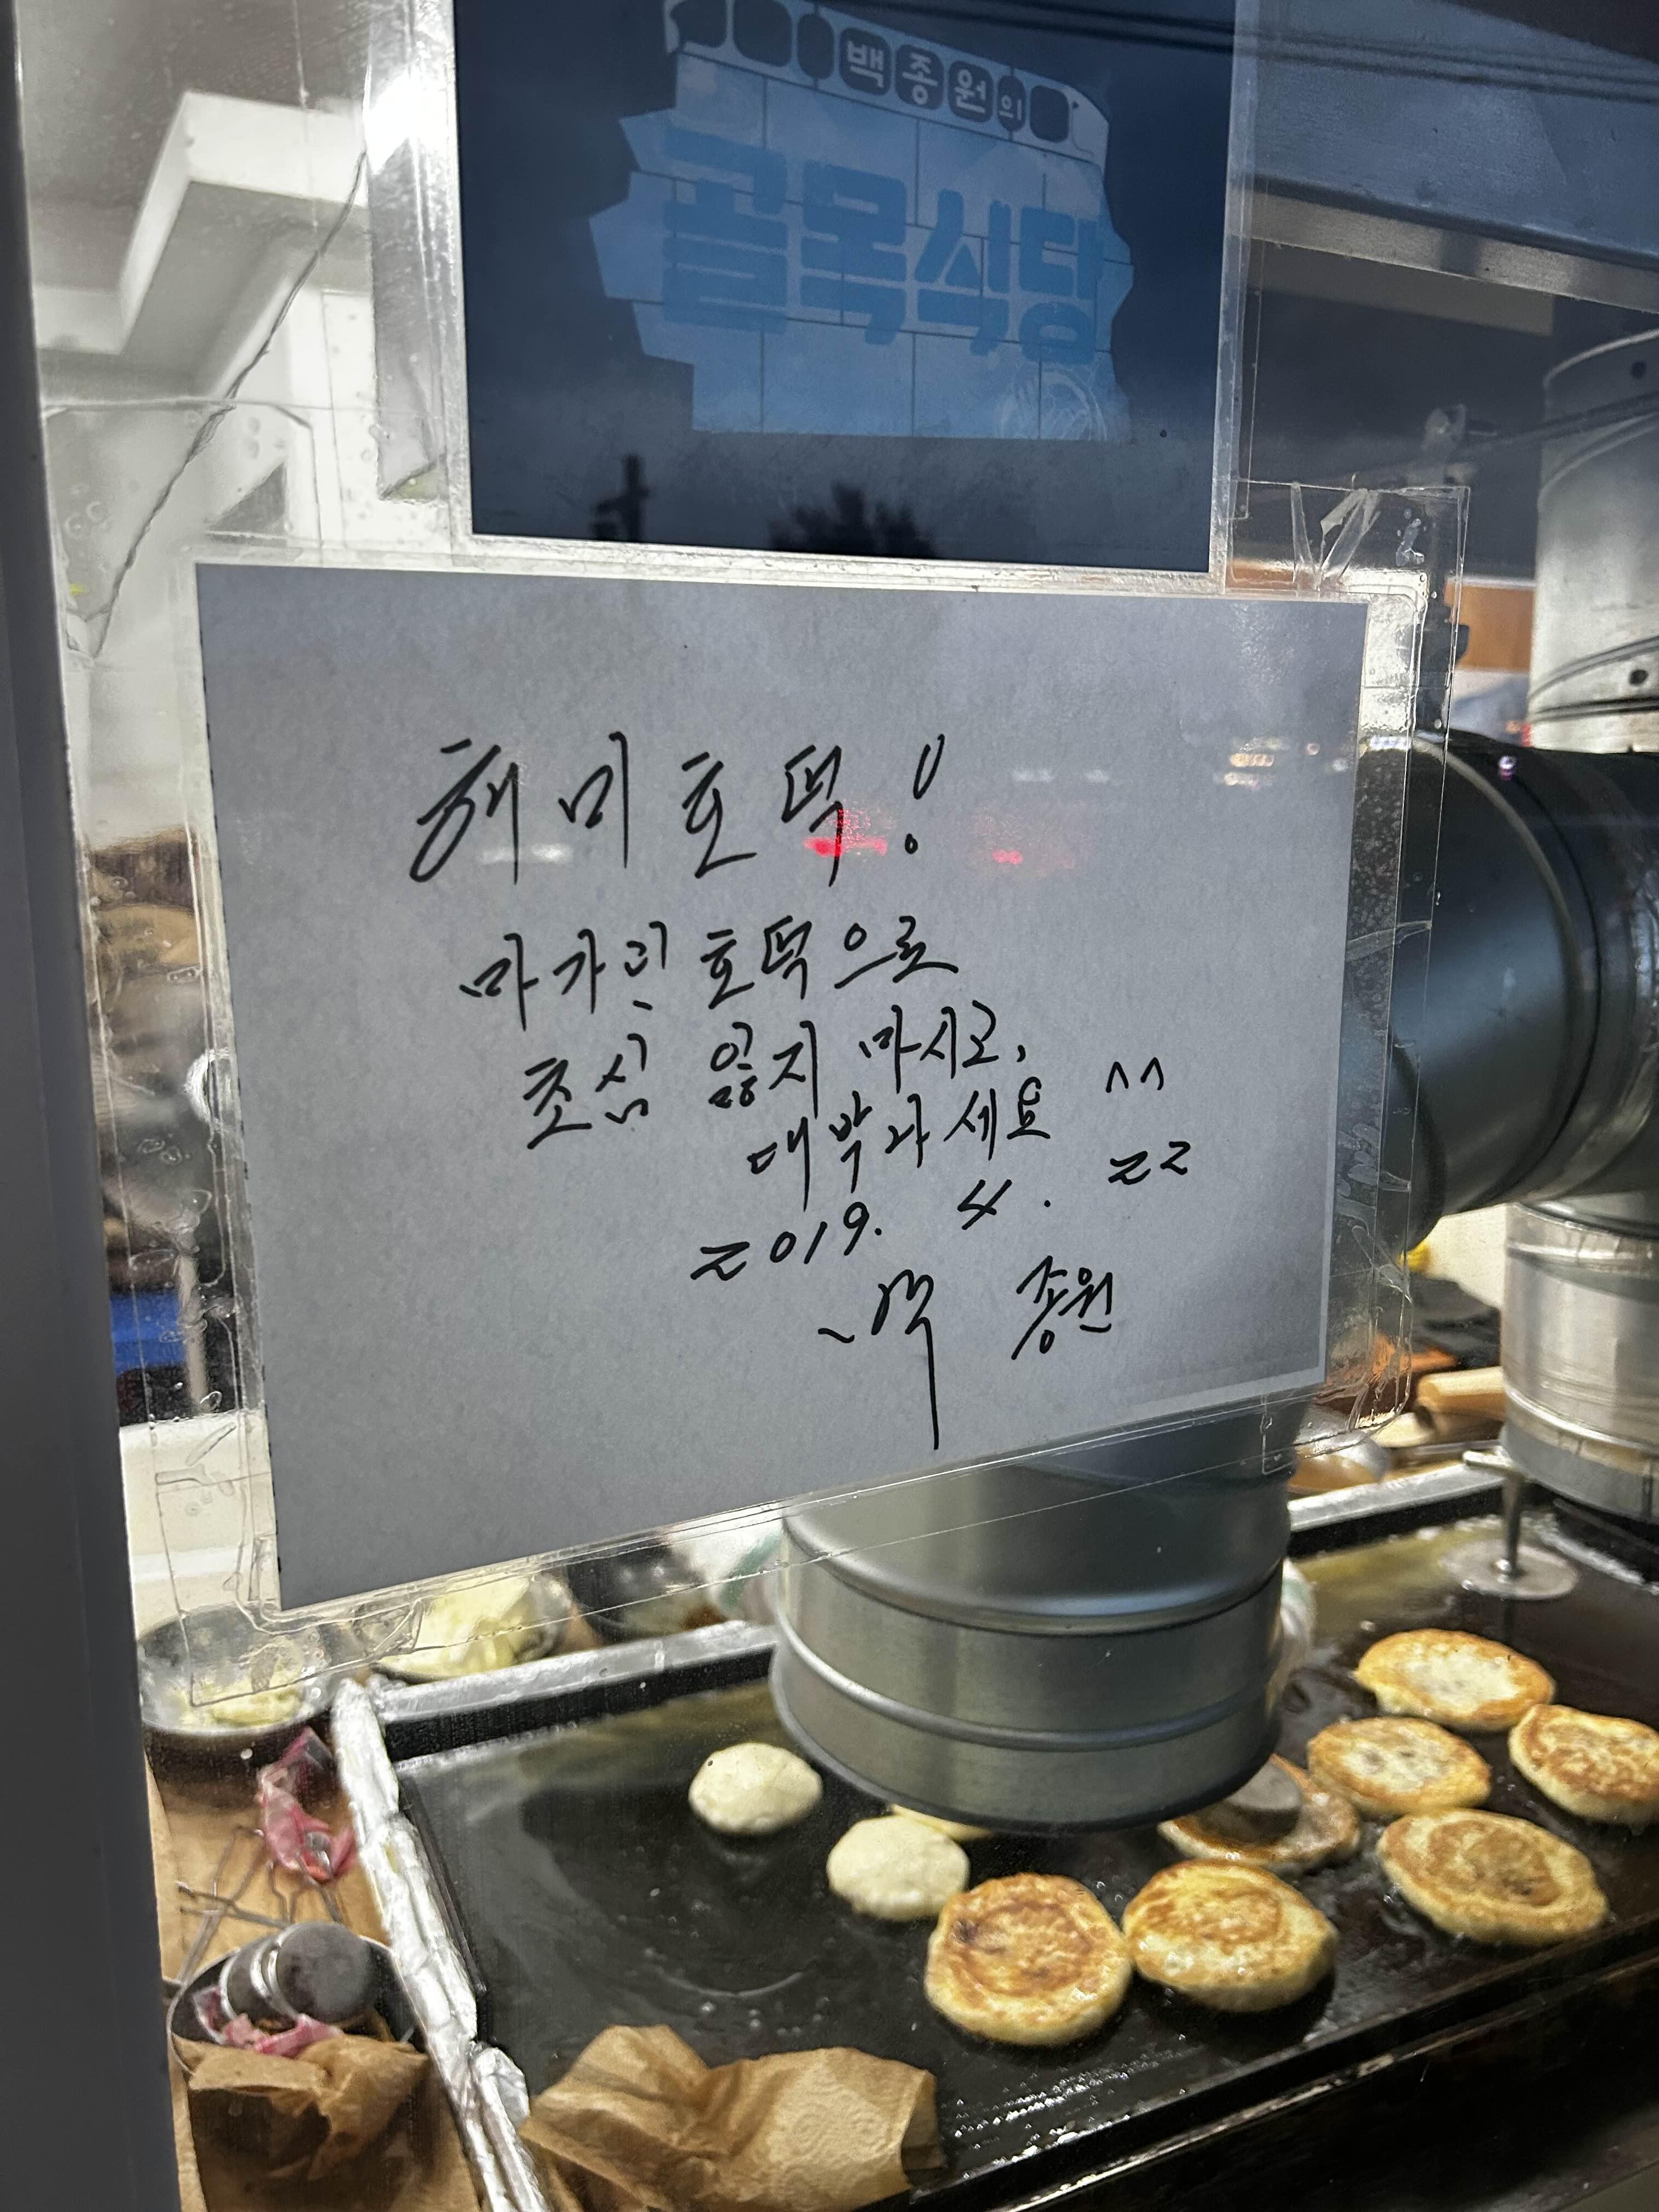 백종원의
골목식당
해미호떡!
마가린 호떡으로
초심 잃지 마시고,
대박나세요 ^^
2019. 4. 22
백 종원